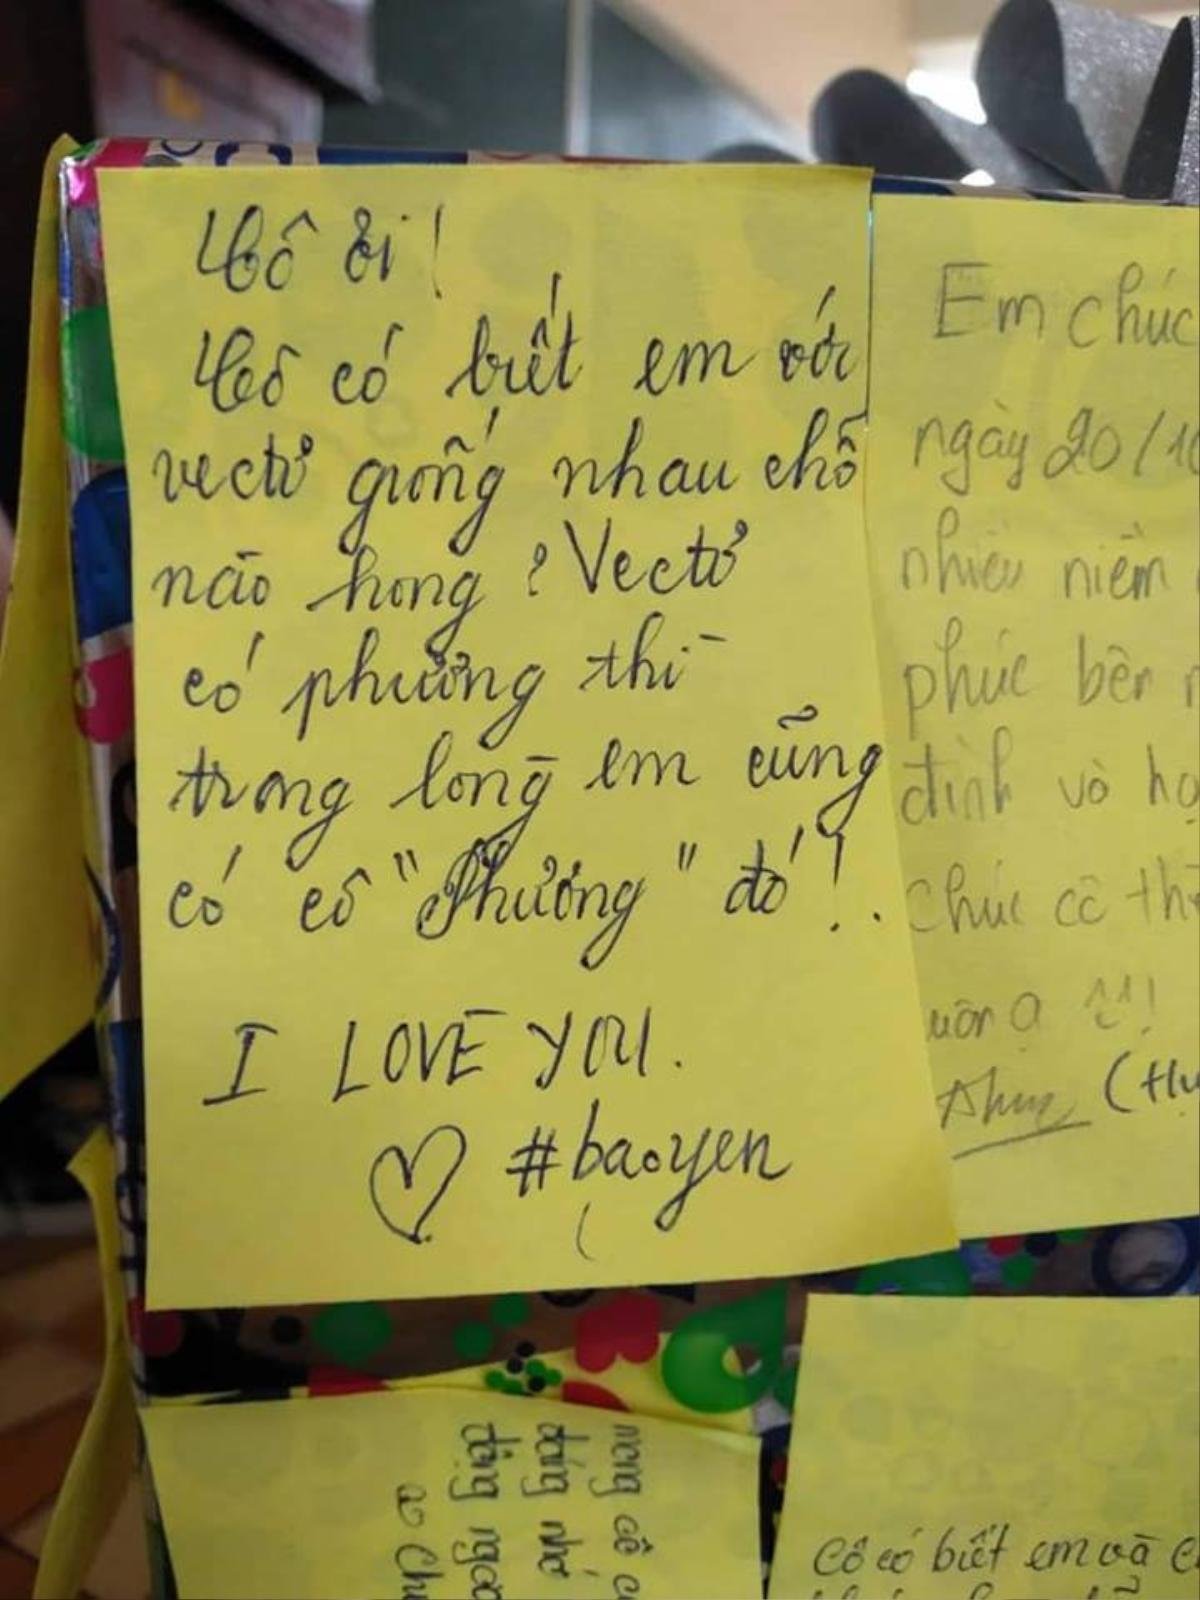 Cô ơi!
Cô có biết em với
vectơ giống nhau chỗ
nào hong? Vectơ
có phương thì
trong lòng em cũng
có cô "Phương" đó!.
I LOVE YOU.
♡ #baoyen
Em chúc
ngày 20/10
nhiều niềm
phúc bên
đình và
chúc cô
(
nhớ
Cô có biết em và c